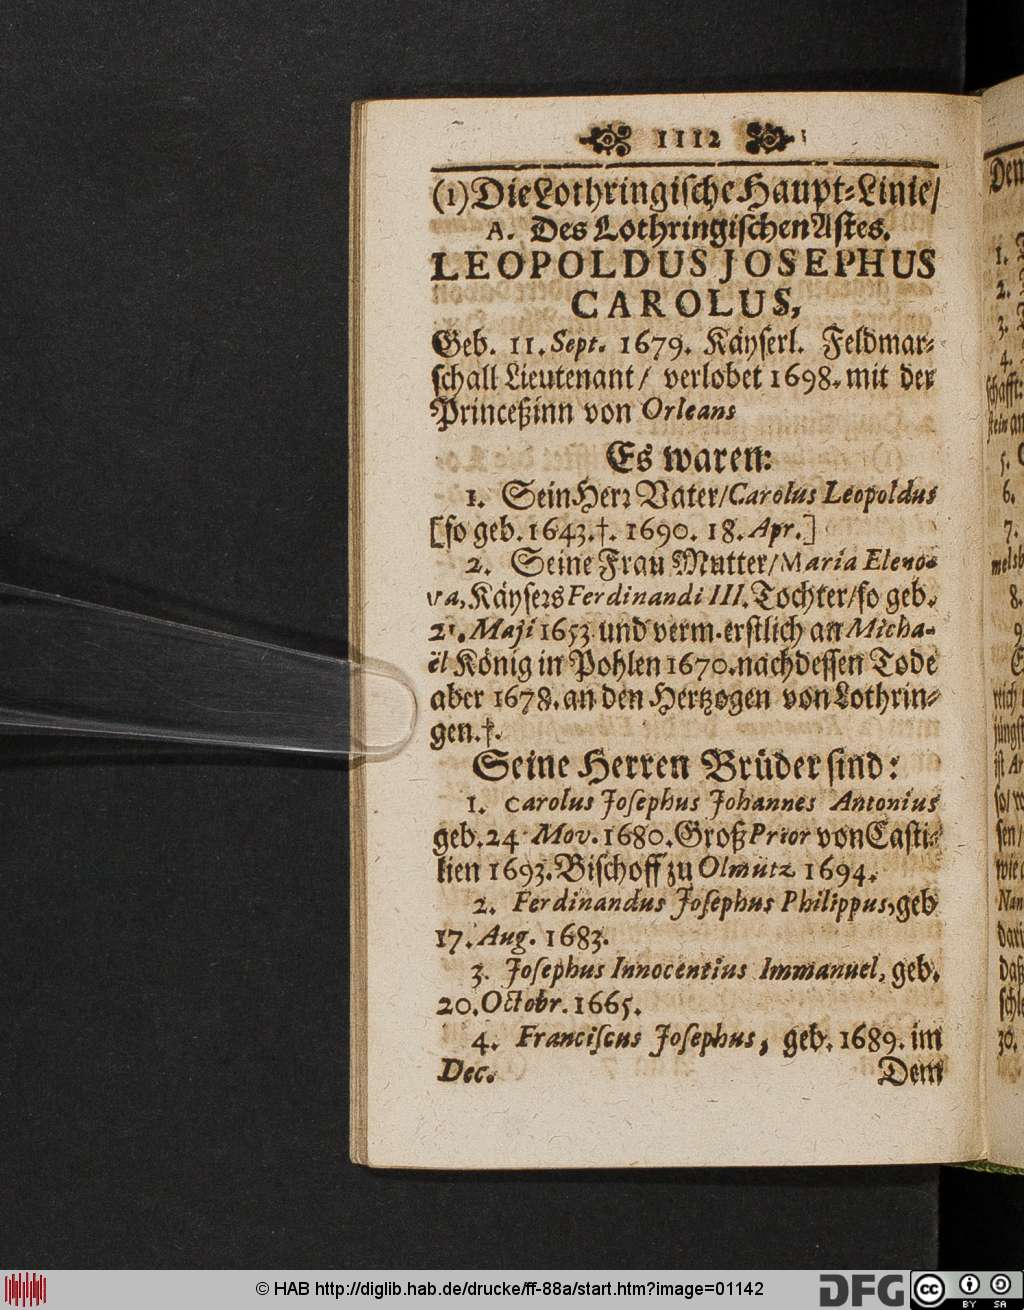 1112
(1) Die Lothringische Haupt-Linie/
A. Des Lothringischen Astes.
LEOPOLDUS JOSEPHUS
CAROLUS,
Geb. 11. Sept. 1679. Käyserl. Feldmar-
schall Lieutenant/ verlobet 1698. mit der
Princeßinn von Orleans
Es waren:
1. Sein Herr Vater/ Carolus Leopoldus
[so geb. 1643. †. 1690. 18. Apr.]
2. Seine Frau Mutter/ Maria Eleno-
ra, Käysers Ferdinandi III. Tochter/ so geb.
21. Maji 1653 und verm. erstlich an Micha-
ël König in Pohlen 1670. nach dessen Tode
aber 1678. an den Hertzogen von Lothrin-
gen. †.
Seine Herren Brüder sind:
1. Carolus Josephus Johannes Antonius
geb. 24 Nov. 1680. Groß Prior von Casti-
lien 1693. Bischoff zu Olmütz 1694.
2. Ferdinandus Josephus Philippus, geb
17. Aug. 1683.
3. Josephus Innocentius Immanuel, geb.
20. Octobr. 1665.
4. Franciscus Josephus, geb. 1689. im
Dec.
Dem
© HAB http://diglib.hab.de/drucke/ff-88a/start.htm?image=01142
DFG
cc BY SA